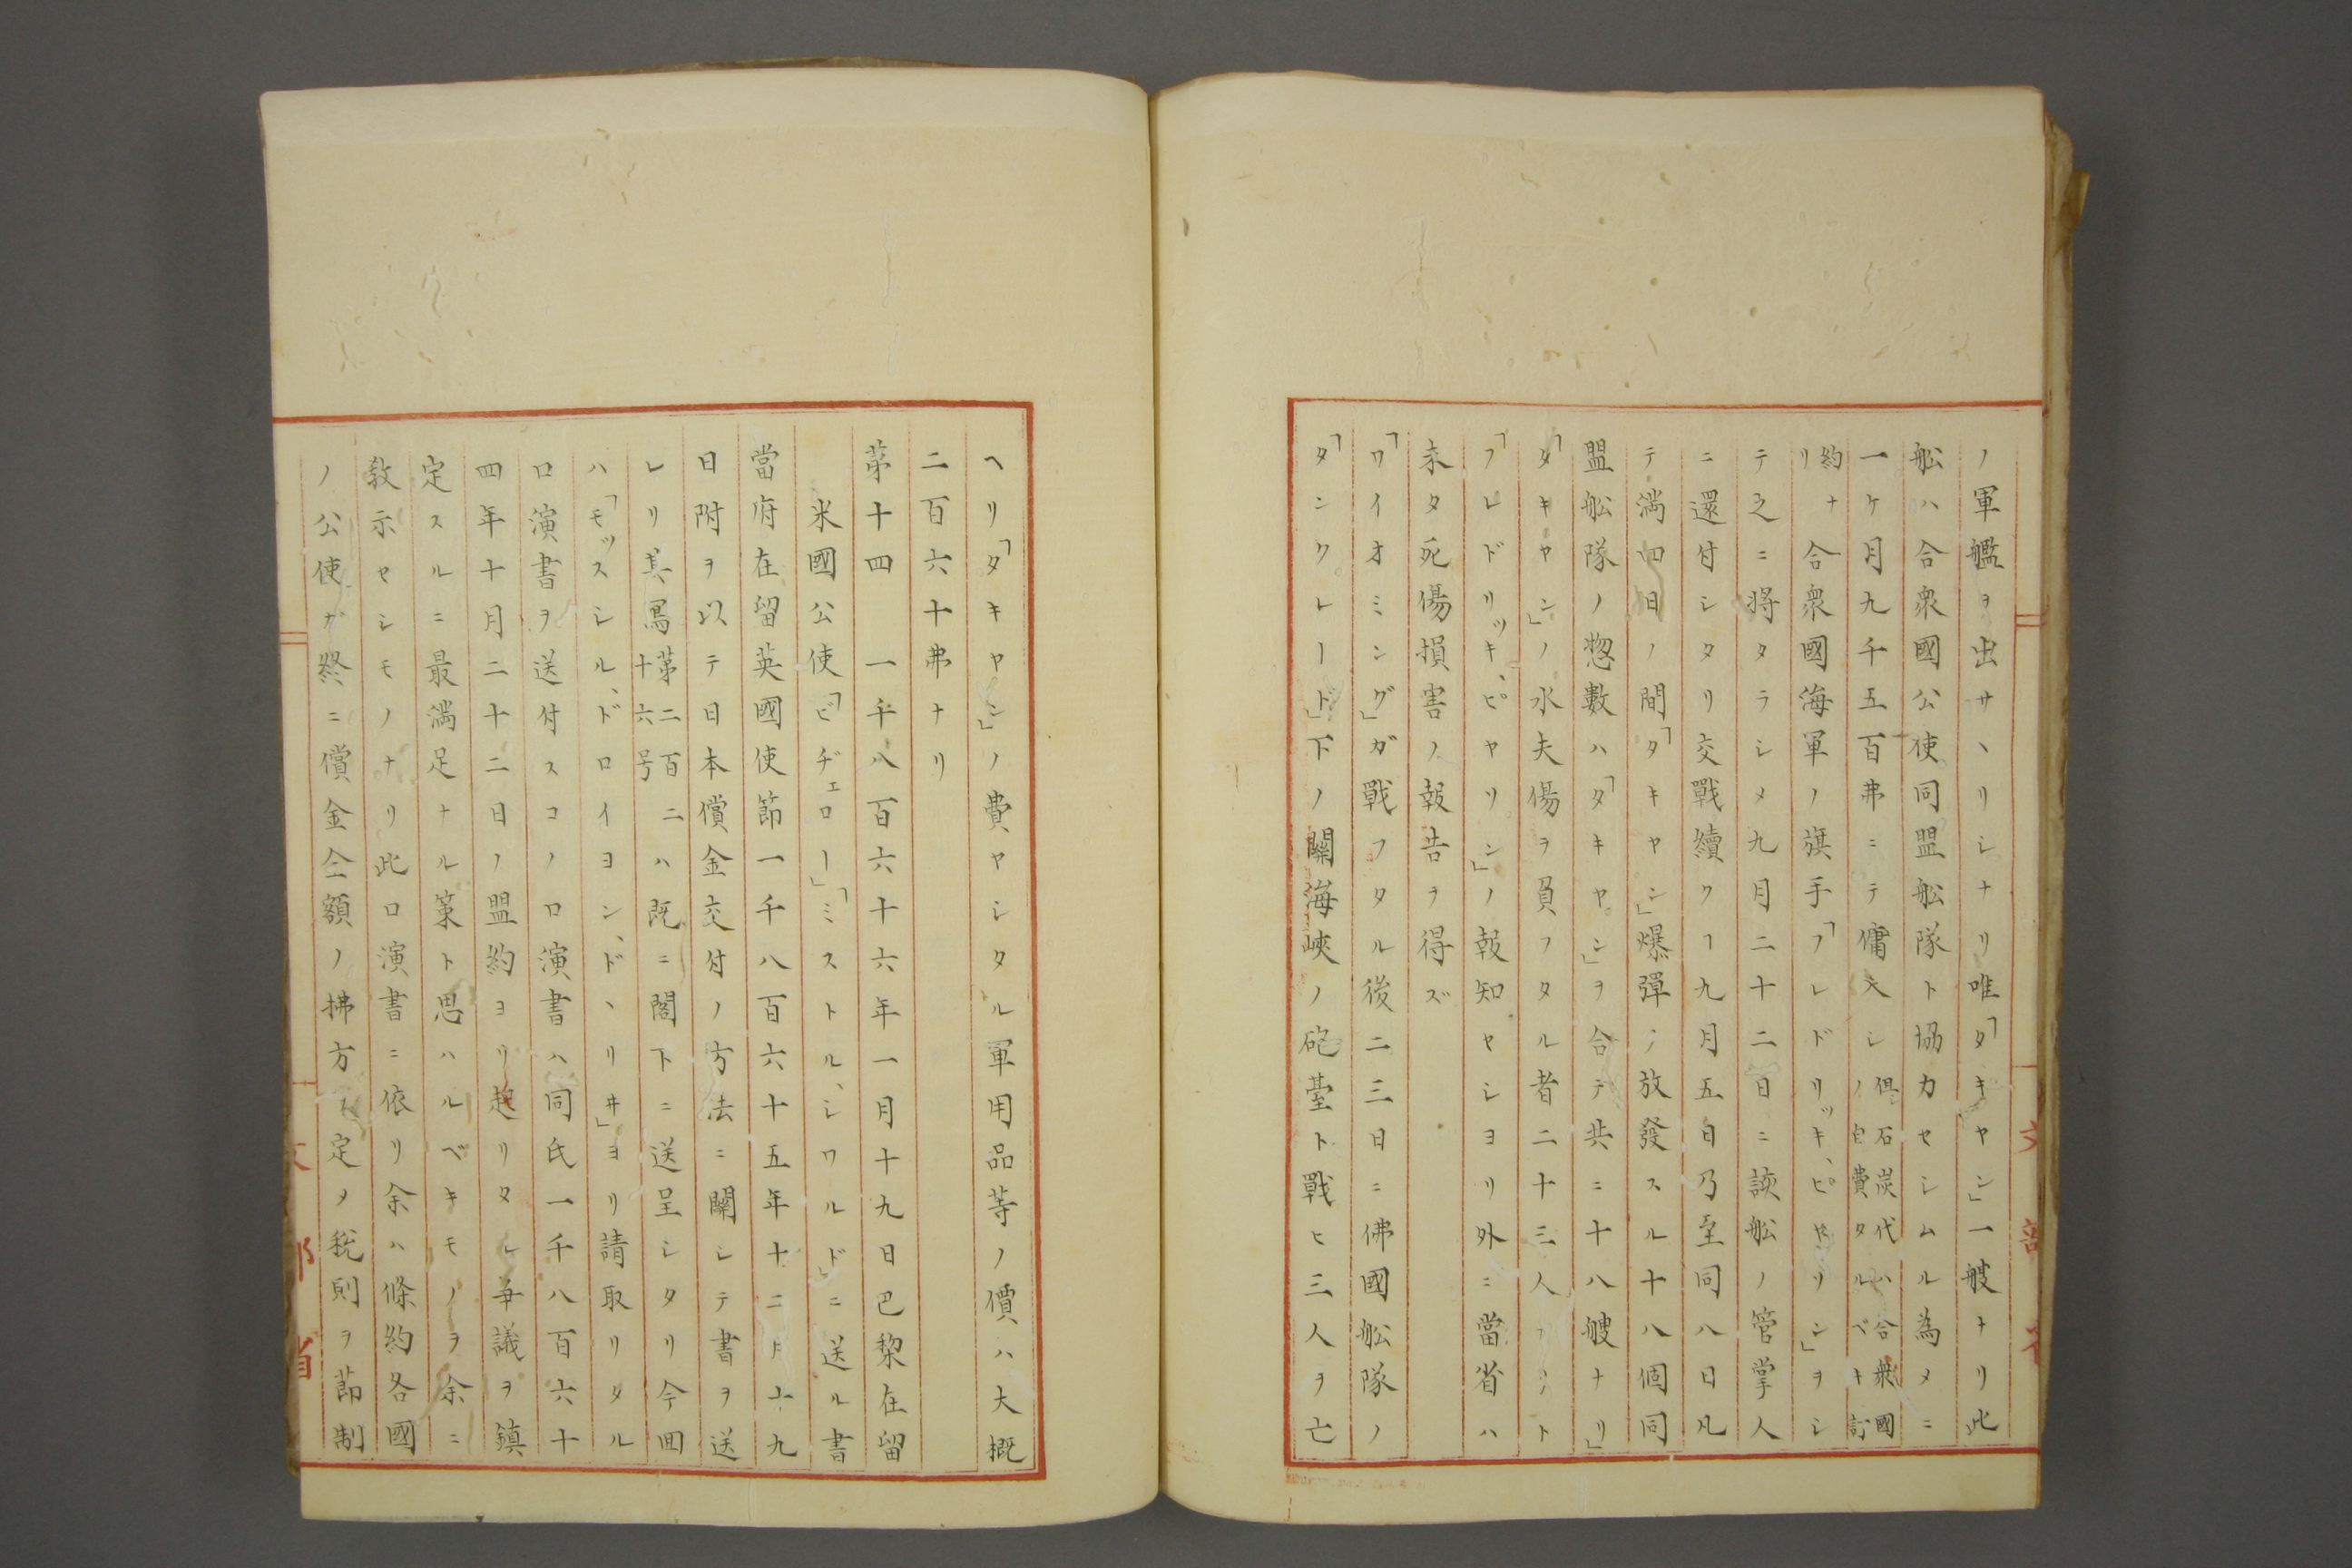 ノ軍艦ヲ出サヽリシナリ唯「タキヤン」一艘ナリ此
舩ハ合衆國公使同盟舩隊ト協力セシムル為メニ
一ケ月九千五百弗ニテ傭夫シ但石炭代ハ合衆國ノ自費タルベキ訂
約ナリ合衆國海軍ノ旗手「フレドリッキ、ピヤリン」ヲシ
テ之ニ将タラシメ九月二十二日ニ該舩ノ管掌人
ニ還付シタリ交戰續クヿ九月五日乃至同八日凡
テ満四日ノ間「タキヤン」爆彈ノ放發スル十八個同
盟舩隊ノ惣數ハ「タキヤン」ヲ合テ共ニ十八艘ナリ」
「タキヤン」ノ水夫傷ヲ負フタル者二十三人ナリト
「フレドリッキ、ピヤリン」ノ報知セシヨリ外ニ當省ハ
未タ死傷損害ノ報告ヲ得ズ
「ワイオミング」ガ戰フタル後二三日ニ佛國舩隊ノ
「タンクレード」下ノ關海峽ノ砲䑓ト戰ヒ三人ヲ亡
ヘリ「タキヤン」ノ費ヤシタル軍用品等ノ價ハ大概
二百六十弗ナリ
第十四　一千八百六十六年一月十九日巴黎在留
米國公使「ビヂェロー」「ミストル、シワルド」ニ送ル書
當府在留英國使節一千八百六十五年十二月十九
日附ヲ以テ日本償金交付ノ方法ニ關シテ書ヲ送
レリ其寫第二百十六号ニハ既ニ閣下ニ送呈シタリ今回
ハ「モッスシル、ドロイヨン、ド、リキ」ヨリ請取リタル
口演書ヲ送付スコノ口演書ハ同氏一千八百六十
四年十月二十二日ノ盟約ヨリ起リタル争議ヲ鎮
定スルニ最満足ナル策ト思ハルベキモノヲ余ニ
教示セシモノナリ此口演書ニ依リ余ハ條約各國
ノ公使ガ終ニ償金全額ノ拂方ヲ定メ税則ヲ節制
文部省
文部省